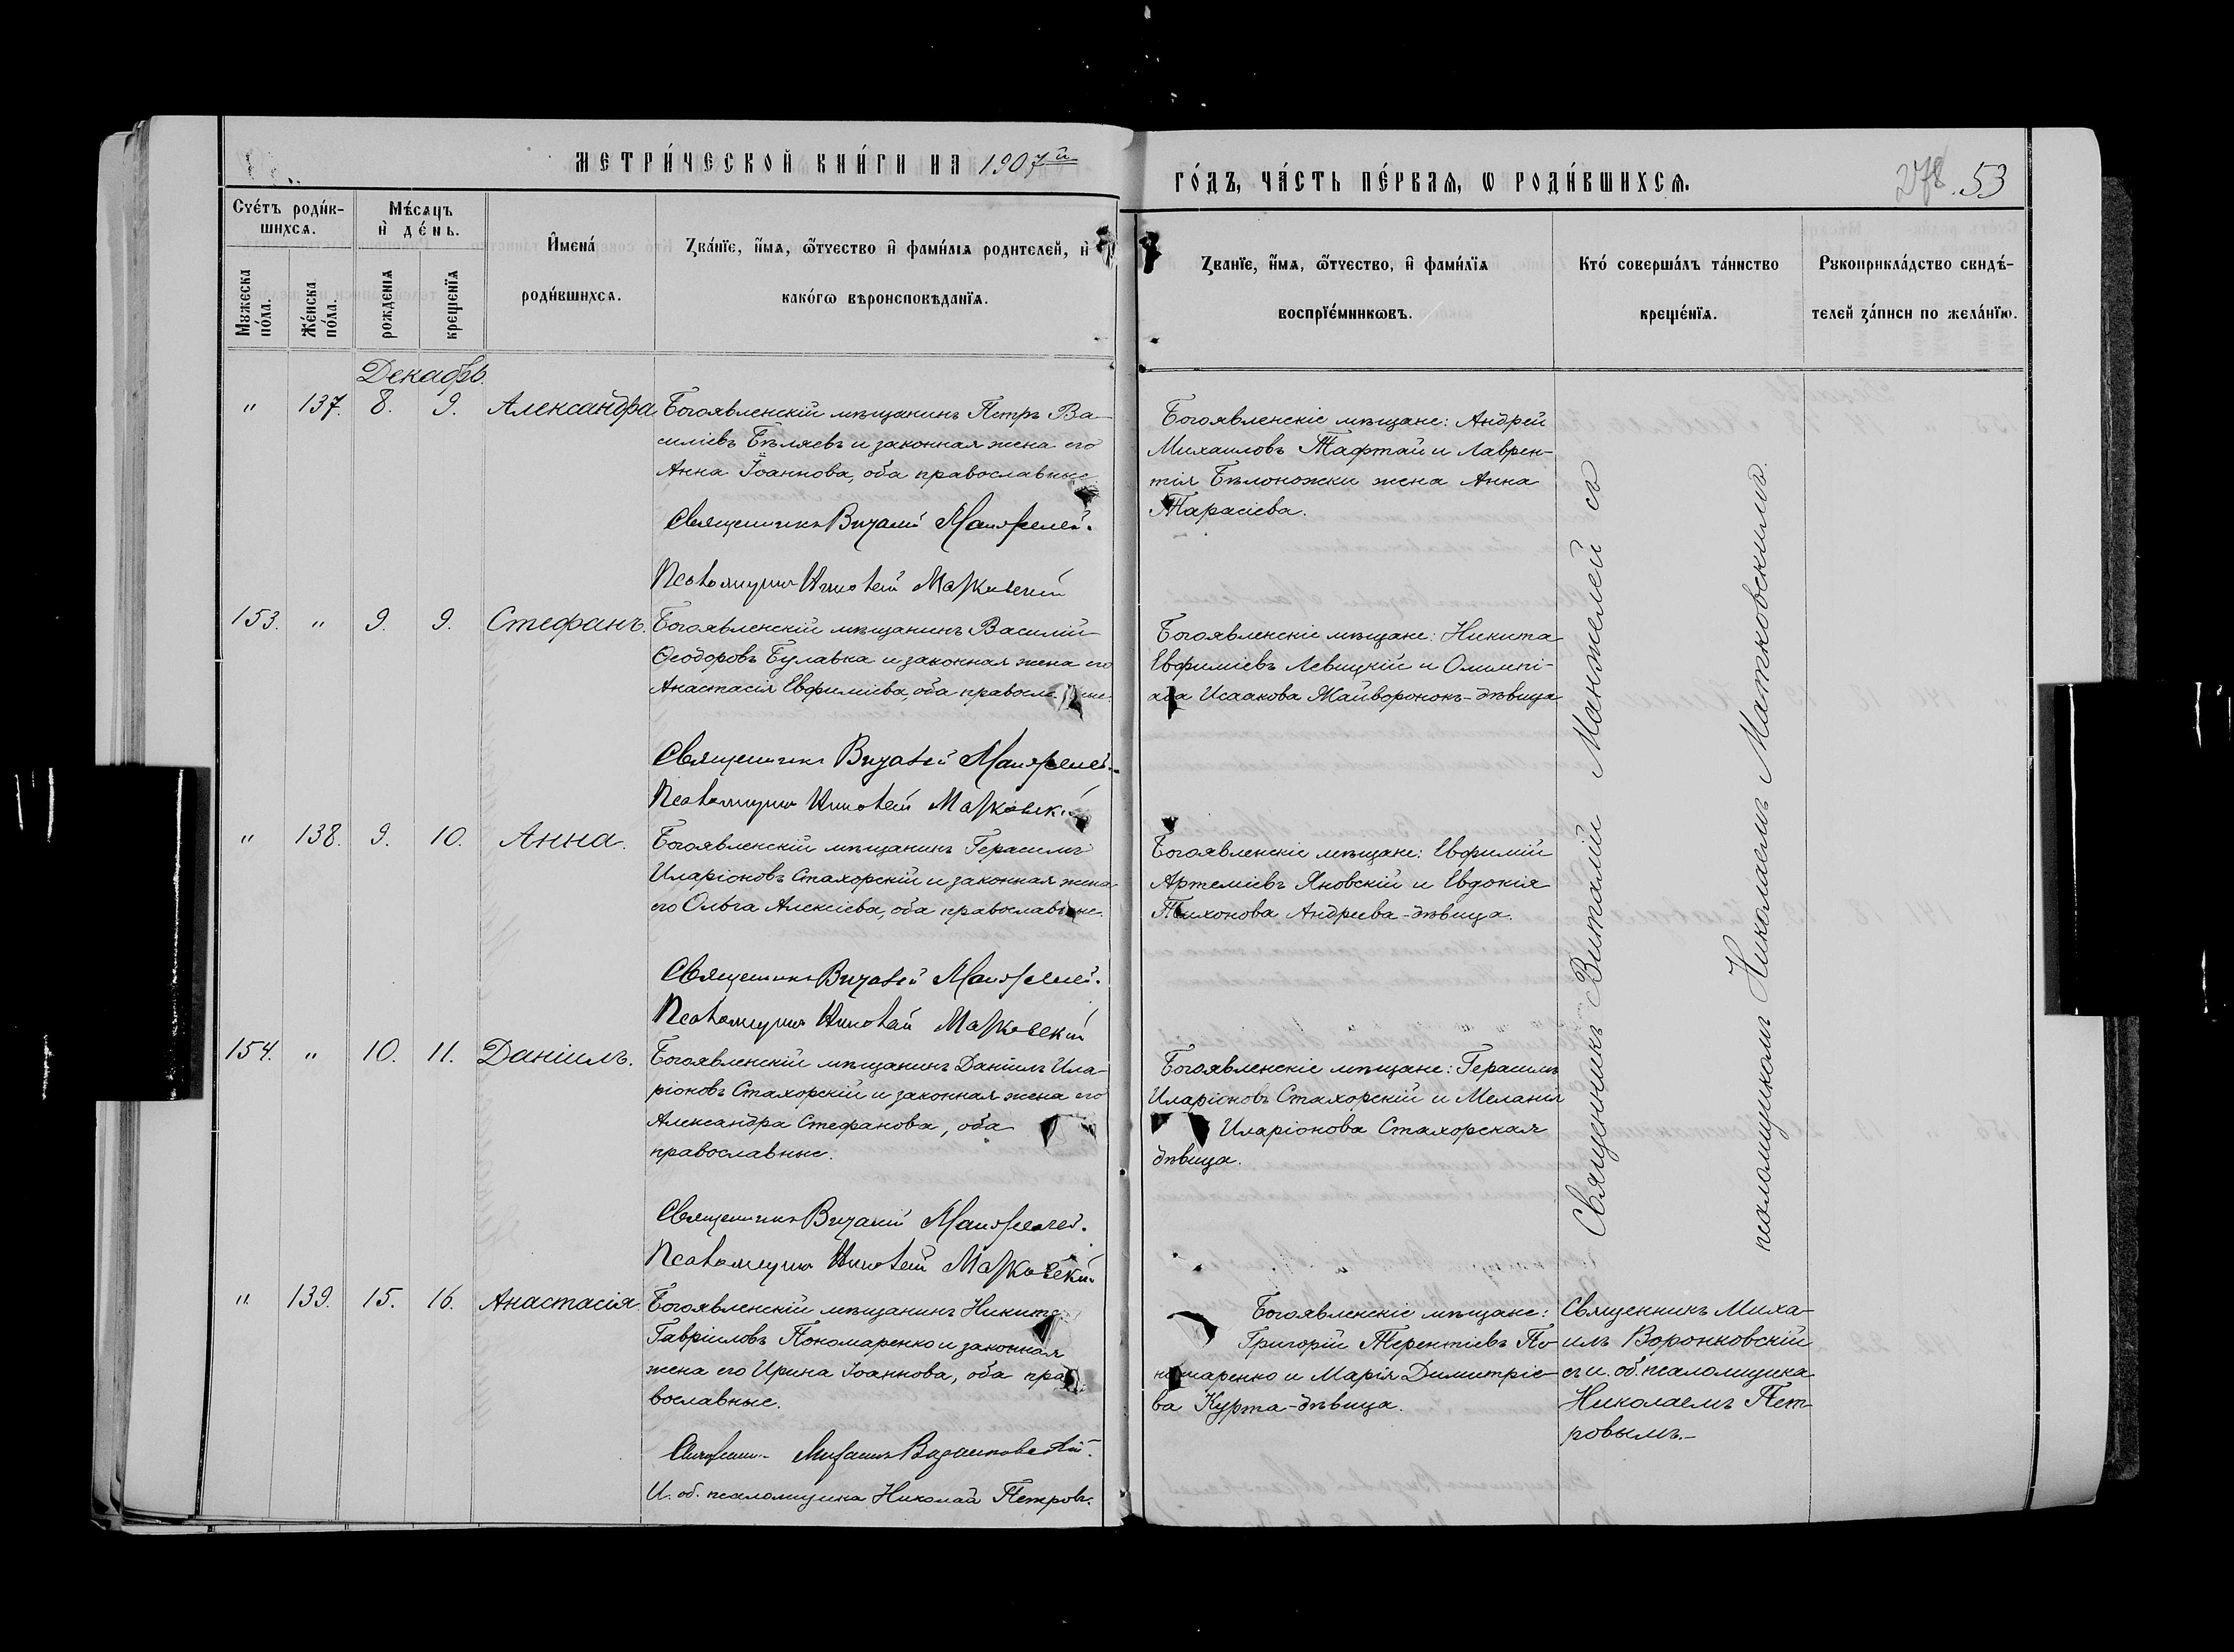 МЕТРИ́ЧЕСКОЙ КНИ́ГИ НА 1907й
ГО́ДЪ, ЧА́СТЬ ПЕ́РВАЯ, Ѡ РОДИ́ВШИХСЯ.
278. 53
Сче́тъ роди́в-
шихся.
Мѣ́сяцъ
и҆ де́нь.
Мужеска
по́ла.
Же́нска
по́ла.
рожденія
крещенїя
И҆мена́
роди́вшихся.
Зва́нїе, и҆́мя, ѻ҆́тчество и҆ фами́лїя родителей, и҆
како́гѡ вѣроисповѣданїя.
Званїе, и҆́мя, ѻ҆́тчество, и҆ фами́лїя
воспрїе́мникѡвъ.
Кто́ соверша́лъ та́инство
креще́нїя.
Рукоприкла́дство свидѣ́-
телей за́писи по жела́нїю.
Декабрь.
" 137. 8. 9. Александра
Богоявленскій мѣщанинъ Петръ Ва-
силіевъ Бѣляевъ и законная жена его
Анна Іоаннова, оба православные
Священникъ Виталій Манжелей.
Псаломщикъ Николай Матковскій
Богоявленскіе мѣщане: Андрей
Михаиловъ Тафтай и Лаврен-
тія Бѣлоножки жена Анна
Тарасіева.
153. " 9. 9. Стефанъ.
Богоявленскій мѣщанинъ Василій
Ѳеодоровъ Булавка и законная жена его
Анастасія Евфиміева, оба
Священникъ Виталій Манжелей.
Псаломщикъ Николай Матковскій
Богоявленскіе мѣщане: Никита
Евфиміевъ Левицкій и Олимпі-
ада Исаакова Жайворонокъ-дѣвица
" 138. 9. 10. Анна.
Богоявленскій мѣщанинъ Герасимъ
Иларіоновъ Стахорскій и законная жена
его Ольга Алексіева, оба православные.
Священникъ Виталій Манжелей.
Псаломщикъ Николай Матковскій
Богоявленскіе мѣщане: Евфимій
Артеміевъ Яновскій и Евдокія
Тихонова Андреева-дѣвица.
154. " 10. 11. Даніилъ.
Богоявленскій мѣщанинъ Даніилъ Ила-
ріоновъ Стахорскій и законная жена его
Александра Стефанова, оба
православные.
Священникъ Виталій Манжелей.
Псаломщикъ Николай Матковскій
Богоявленскіе мѣщане: Герасимъ
Иларіоновъ Стахорскій и Меланія
Иларіонова Стахорская
дѣвица.
Священникъ Виталій Манжелей съ
псаломщикомъ Николаемъ Матковскимъ.
" 139. 15. 16. Анастасія.
Богоявленскій мѣщанинъ Никита
Гавріиловъ Пономаренко и законная
жена его Ирина Іоаннова, оба пра-
вославные.
Священникъ Михаилъ Воронковскій.
И. об. псаломщика Николай Петровъ.
Богоявленскіе мѣщане:
Григорій Терентіевъ По-
номаренко и Марія Димитріе-
ва Курта-дѣвица.
Священникъ Миха-
илъ Воронковскій
съ и. об. псаломщика
Николаемъ Пет-
ровымъ.-